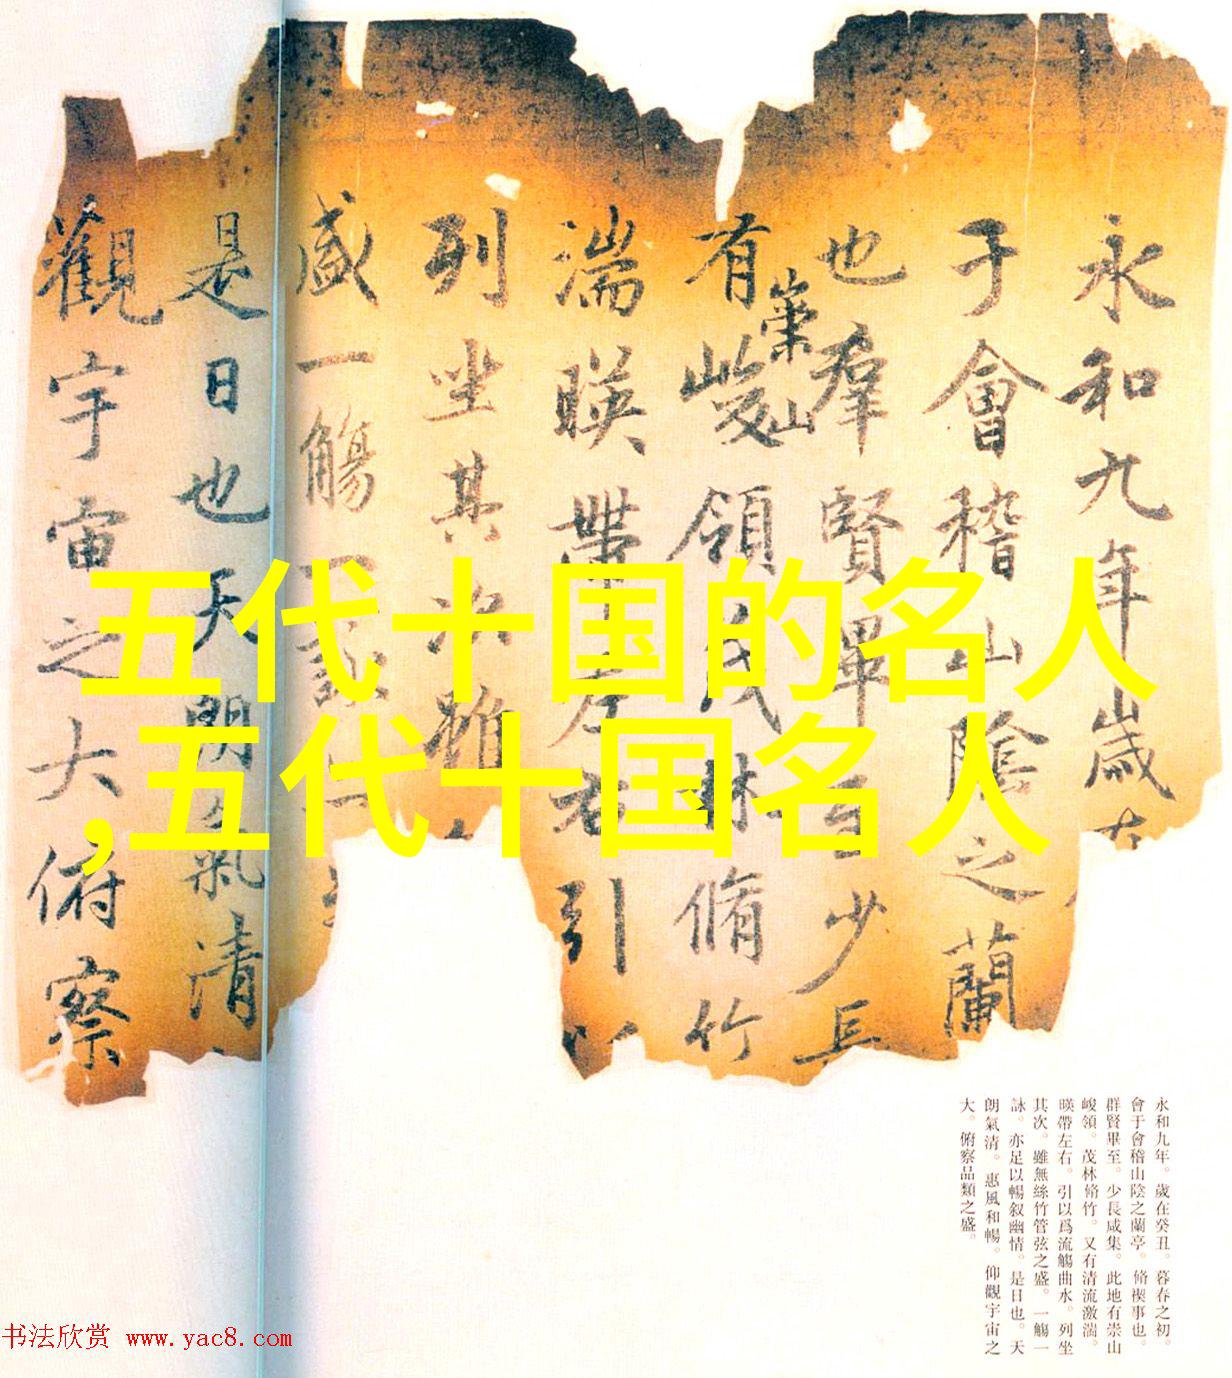 永和九年歲在
于會稽山陰之蘭
也羣賢畢至少長
有崇山峻領茂林脩竹
湍暎帶左右引以
列坐其次雖
盛一觴一詠
是日也天朗氣清
觀宇宙之大俯察
五代十国的名人
,五代十国名人
永和九年。歲在癸丑。暮春之初。
會于會稽山陰之蘭亭。脩禊事也。
群賢畢至。少長咸集。此地有崇山
峻領。茂林脩竹。又有清流激湍。
暎帶左右。引以爲流觴曲水。列坐
其次。雖無絲竹管弦之盛。一觴一
詠。亦足以暢叙幽情。是日也。天
朗氣清。惠風和暢。仰觀宇宙之
大。俯察品類之盛。
书法欣赏 www.yac8.com